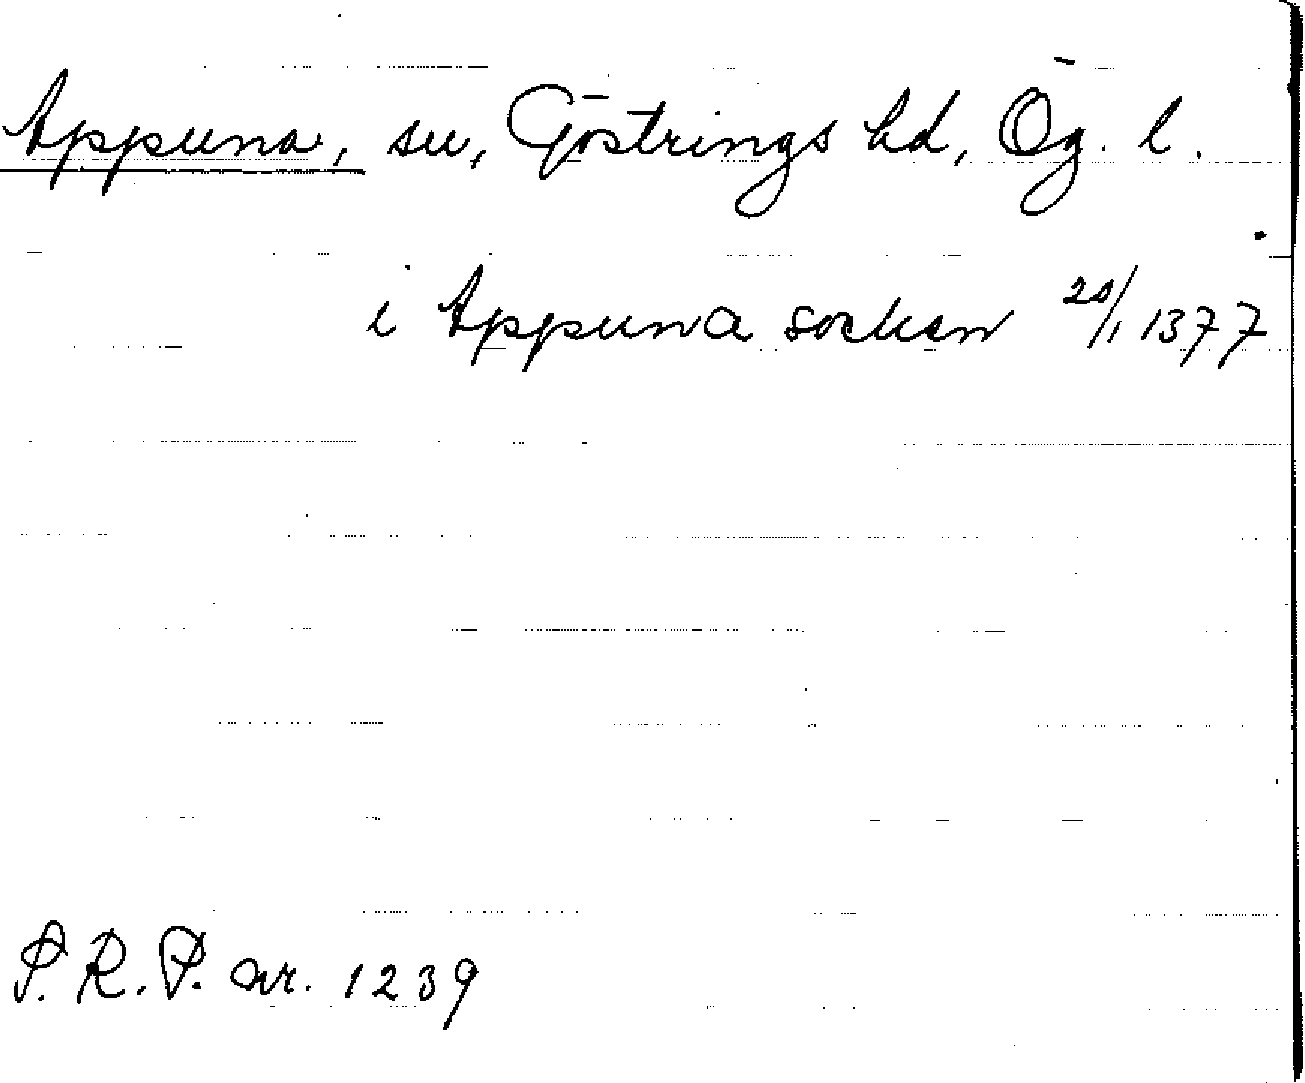 Appuna, sn, Göstrings hd, Ög. l.
i Appuna socken 20/1 1377
S. R. P. nr. 1239